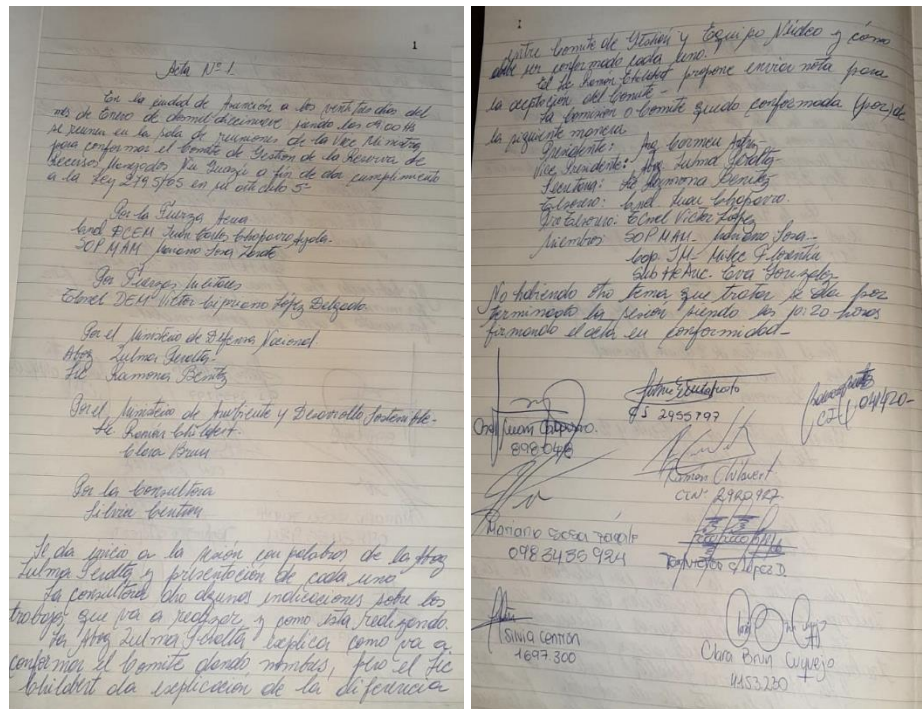 1
Acta Nº 1.
En la ciudad de Asunción a los veintitres días del
mes de Enero de dosmil diecinueve, siendo las 09:00 Hs
se reunen en la sala de reuniones de la Vice Ministra
para conformar el Comité de Gestión de la Reserva de
Recursos Manejados Ñu Guazú a fin de dar cumplimiento
a la Ley 2795/05 en su artículo 5º
Por la Fuerza Aerea
Cnel DCEM Juan Carlos Chaparro Ayala.
SOP MAM Mariano Sosa
Por Fuerzas Militares
TCnel DEM Victor Cipriano López Delgado.
Por el Ministerio de Defensa Nacional.
Abog Zulma Peralta.
Lic Ramona Benitez
Por el Ministerio de Ambiente y Desarrollo Sostenible-
Lic Ramón Chilavert.
Clara Brun
Por la Consultora
Silvia Centron
Se da inicio a la sesión con palabras de la Abog
Zulma Peralta y presentación de cada uno.
La consultora dio algunas indicaciones sobre los
trabajos que va a realizar y como esta realizando.
La Abog Zulma Peralta explica como va a
conformar el Comite dando nombres, pero el Lic
Chilabert da explicacion de la diferencia
1
entre Comite de Gestión y Equipo Núcleo y cómo
debe ser conformado cada uno.
El Lic Ramon Chilabert propone enviar nota para
la aceptacion del Comité-
La comision o Comite quedo conformada (por) de
la siguiente manera
Presidente: Ing Carmen
Vice Presidente: Abog. Zulma Peralta-
Secretaria: Lic Ramona Benitez
Tesorero: Cnel. Juan Chaparro.
Pro Tesorero: TCnel Victor López
Miembros SOP MAM- Mariano Sosa-
Cap. JM- Florentin
Eva González
No habiendo otro tema que tratar se da por
terminado la sesión siendo las 10:20 horas
firmando el acta en conformidad-
Cnel Juan Chaparro.
2955797
Ramón Chilavert
CIN: 2920.927
Mariano Sosa
0983435924
Silvia Centron
1697.300
Clara Brun Cuquejo
4153230